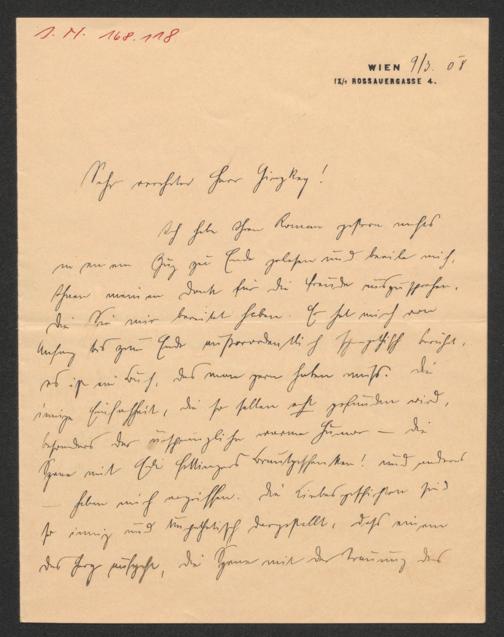 I. N. 168.118
WIEN 9/3. 08
IX/1 ROSSAUERGASSE 4.
Sehr verehrter Herr Ginzkey!
Ich habe Ihren Roman gestern nachts
in einem Zug zu Ende gelesen und beeile mich,
Ihnen meinen Dank für die Freude auszusprechen,
die Sie mir bereitet haben. Er hat mich von
Anfang bis zum Ende außerordentlich sympathisch berührt,
es ist ein Buch, das man gern haben muss. Die
innige Einfachheit, die so selten echt gefunden wird,
besonders der ursprüngliche warme Humor — die
Szene mit Brautgeschenken! und anderes
— haben mich ergriffen. Die Liebesgeschichten sind
so innig und unpathetisch dargestellt, dass einem
das Herz aufgeht, die Szene mit der Trauung des